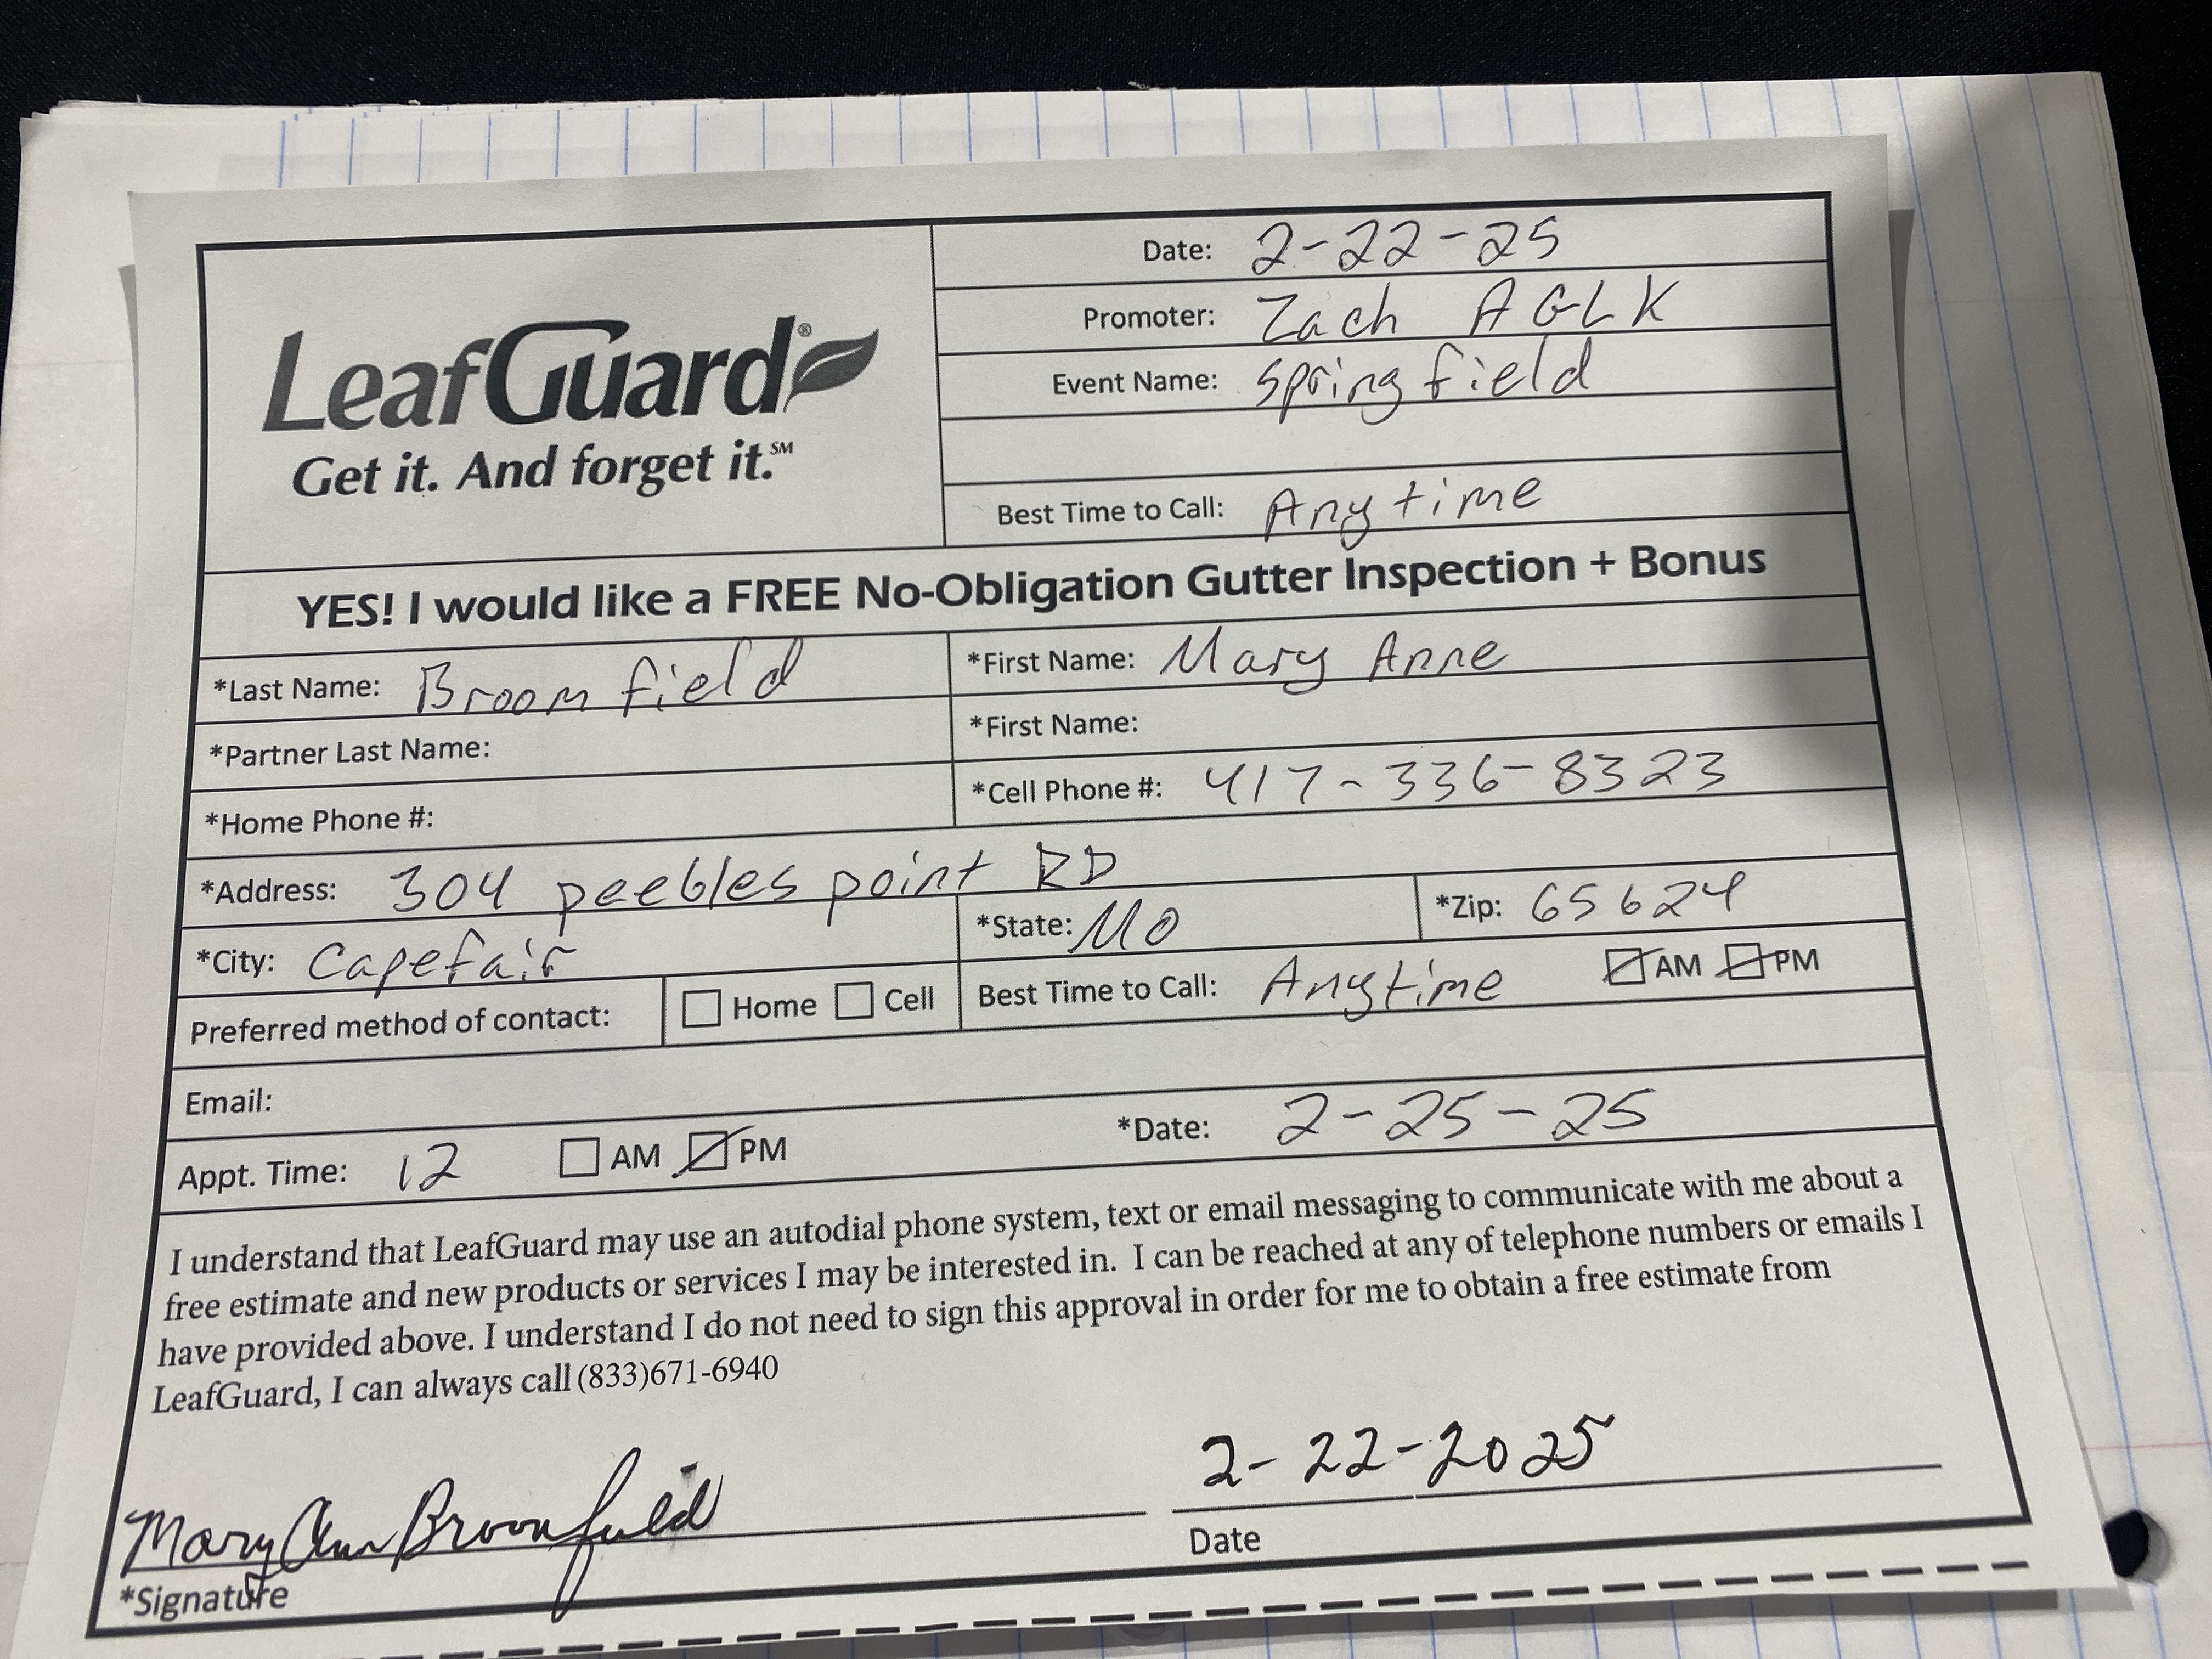 LeafGuard®
Get it. And forget it.℠
Date: 2-22-25
Promoter: Zach AGLK
Event Name: Springfield
Best Time to Call: Anytime
YES! I would like a FREE No-Obligation Gutter Inspection + Bonus
*Last Name: Broomfield *First Name: Mary Anne
*Partner Last Name: *First Name:
*Home Phone #: *Cell Phone #: 417-336-8323
*Address: 304 peebles point RD
*City: Capefair *State: MO *Zip: 65624
Preferred method of contact: ☐ Home ☐ Cell Best Time to Call: Anytime ☑ AM ☑ PM
Email:
Appt. Time: 12 ☐ AM ☑ PM *Date: 2-25-25
I understand that LeafGuard may use an autodial phone system, text or email messaging to communicate with me about a
free estimate and new products or services I may be interested in. I can be reached at any of telephone numbers or emails I
have provided above. I understand I do not need to sign this approval in order for me to obtain a free estimate from
LeafGuard, I can always call (833)671-6940
Mary Ann Broomfield 2-22-2025
*Signature Date